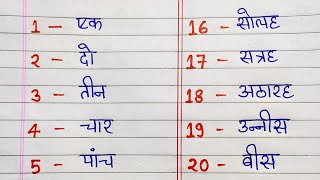 1 - एक
2 - दो
3 - तीन
4 - चार
5 - पांच
16 - सोलह
17 - सत्रह
18 - अठारह
19 - उन्नीस
20 - बीस